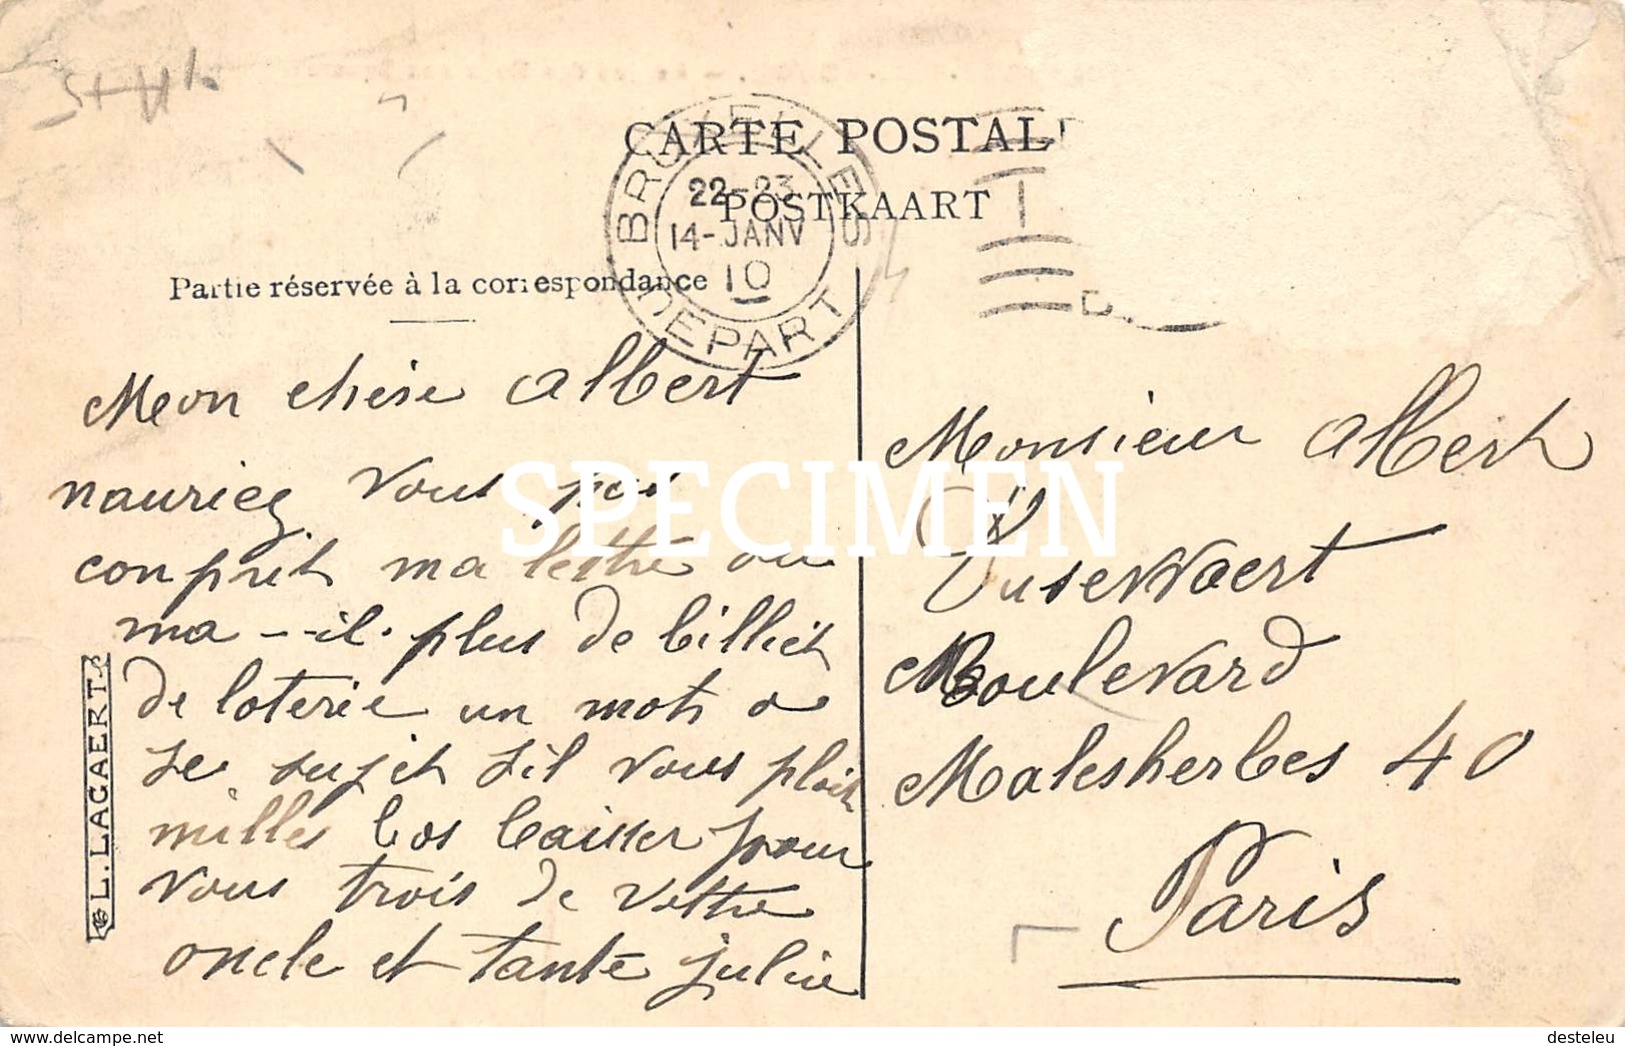 St Hk
CARTE POSTALE
POSTKAART
BRUXELLES
22-23
14-JANV
10
DEPART
Partie réservée à la correspondance
Mon chère Albert
nauriez vous pas
conprit ma lettre ou
ma--il. plus de billiet
de loterie un mots a
se sujet s'il vous plait
milles bos baisser pour
vous trois de vottre
oncle et tante julie
Monsieur Albert
Dusewaert
Boulevard
Malesherbes 40
Paris
L. LAGAERT
SPECIMEN
www.delcampe.net
desteleu